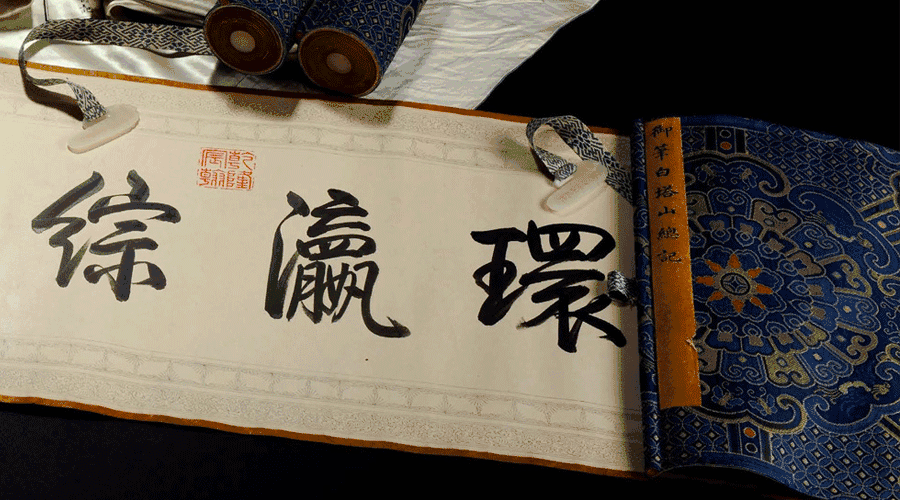 御筆白塔山總記
環瀛綜
乾隆
宸翰